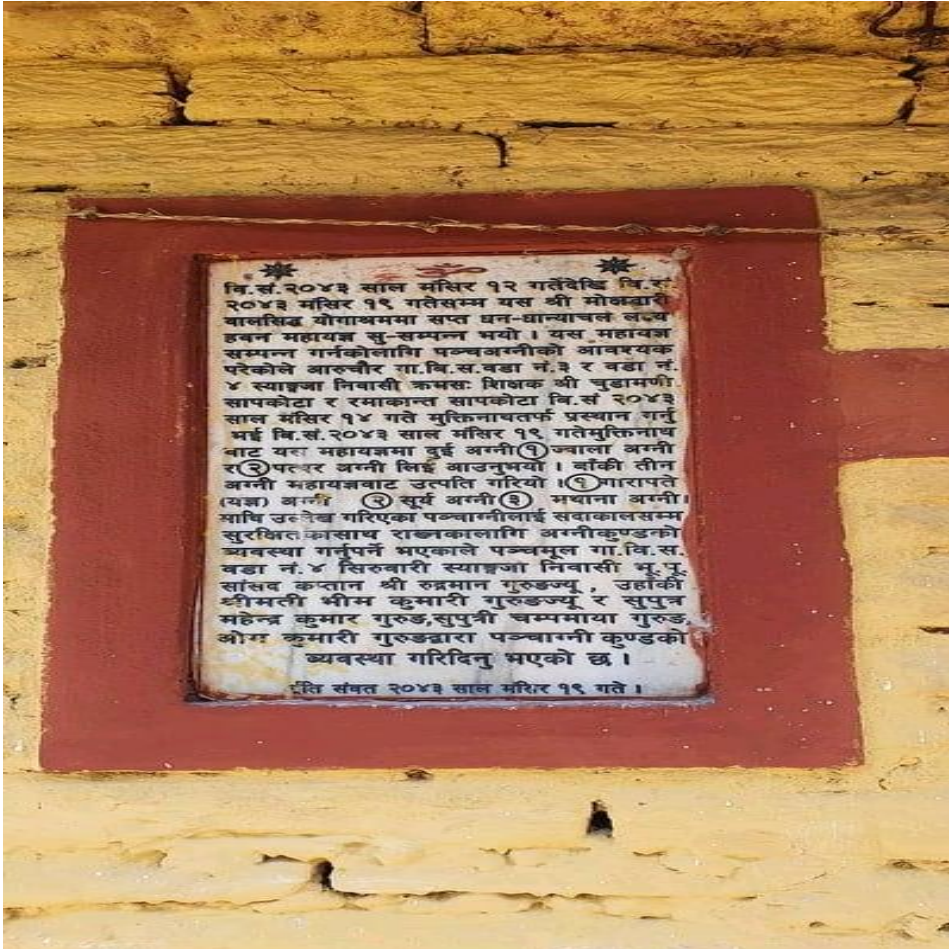 ॐ
वि.सं.२०४३ साल मंसिर १२ गतेदेखि
२०४३ मंसिर १९ गतेसम्म यस श्री मोक्षद्वारी
बालसिद्ध योगाश्रममा सप्त धन-धान्याचल
हवन महायज्ञ सु-सम्पन्न भयो । यस महायज्ञ
सम्पन्न गर्नकोलागि पञ्चअग्नीको आवश्यक
परेकोले आरुचौर गा.वि.स.वडा नं.३ र वडा नं.
४ स्याङ्गजा निवासी क्रमसः शिक्षक श्री चुडामणी
सापकोटा र रमाकान्त सापकोटा वि.सं २०४३
साल मंसिर १४ गते मुक्तिनाथतर्फ प्रस्थान गर्नु
भई वि.सं.२०४३ साल मंसिर १९ गतेमुक्तिनाथ
बाट यस महायज्ञमा दुई अग्नी १ ज्वाला अग्नी
र २ पत्थर अग्नी लिई आउनुभयो । बाँकी तीन
अग्नी महायज्ञबाट उत्पति गरियो । १
(यज्ञ) अग्नी २ सूर्य अग्नी ३ मथाना अग्नी।
माथि उल्लेख गरिएका पञ्चाग्नीलाई सदाकालसम्म
सुरक्षितकासाथ राख्नकालागि अग्नीकुण्डको
व्यवस्था गर्नुपर्ने भएकाले पञ्चमूल गा.वि.स.
वडा नं.४ सिरुवारी स्याङ्गजा निवासी भू.पू.
सांसद कप्तान श्री रुद्रमान गुरुङज्यू , उहाँकी
श्रीमती भीम कुमारी गुरुङज्यू र सुपुत्र
महेन्द्र कुमार गुरुङ,सुपुत्री चम्पमाया गुरुङ,
ओम कुमारी गुरुङद्वारा पञ्चाग्नी कुण्डको
व्यवस्था गरिदिनु भएको छ ।
संवत २०४३ साल मंसिर १९ गते ।